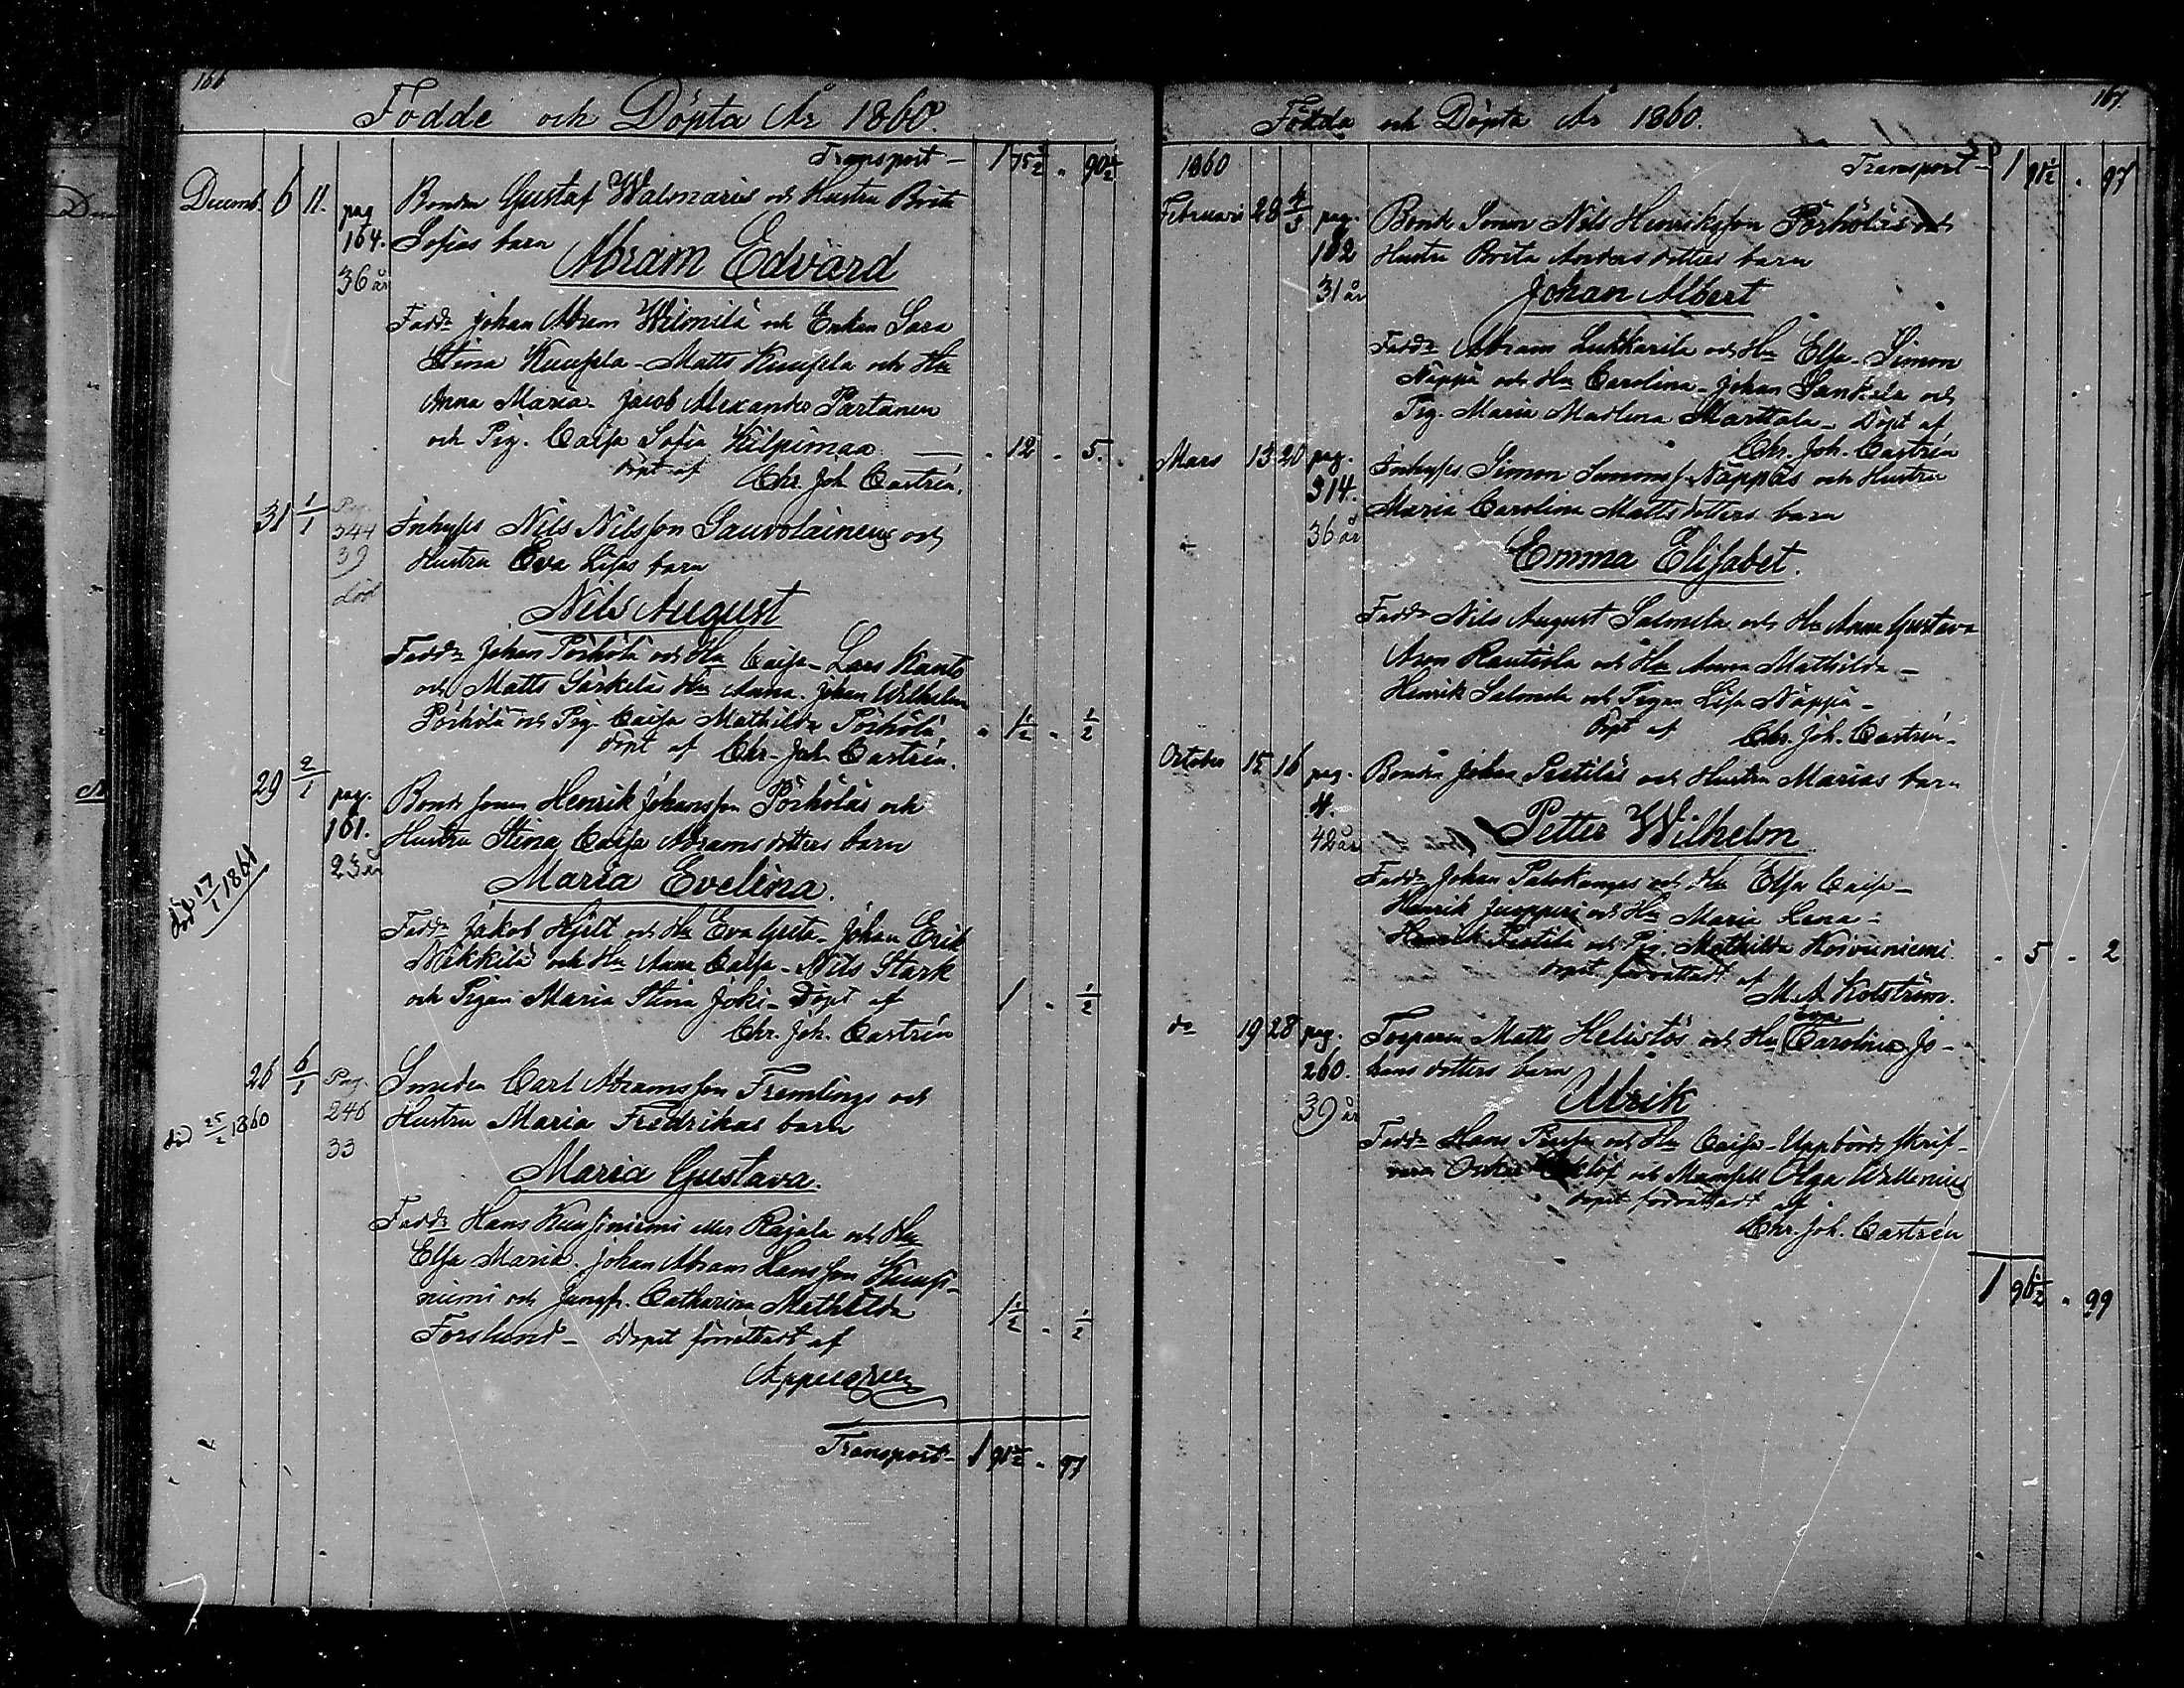 166
Födde och Döpta År 1860.
Transport – 1 75½ „ 90½
Decemb. 6 11. pag 164. 36 år
Bonden Gustaf Walmaris och Hustru Brita
Sofias barn
Abram Edvard
Fadd: Johan Abram Wilmilä och Enkan Sara
Stina Kuusela – Matts Kuusela och Hu
Anna Maria – Jacob Alexander Partanen
och Pig. Caisa Sofia Kilpimaa — „ 12 „ 5.
döpt af Chr. Joh. Castrén.
31 1/1 Pag. 344 39 död
Inhyses Nils Nilsson Sauvolainens och
Hustru Eva Lisas barn
Nils August
Fadd: Johan Pörhölä och Hu Caisa – Lars Kanto
och Matts Särkelä Hu Anna. Johan Wilhelm
Pörhölä och Pig. Caisa Mathilda Pörhölä. „ 1½ „ ½
döpt af Chr. Joh. Castrén.
29 2/1 pag. 161. 23 år
Bonde sonen Henrik Johansson Pörhöläs och
Hustru Stina Caisa Abrams dotters barn
död 17/1 1861
Maria Evelina.
Fadd: Jakob Hjelt och Hu Eva Greta – Johan Erik
Mikkilä och Hu Anna Caisa – Nils Stark
och Pigan Maria Stina Joki – Döpt af 1 „ ½
Chr. Joh. Castrén
26 6/1 Pag. 246 33
Smeden Carl Abramsson Fremlings och
Hustru Maria Fredrikas barn
död 25/2 1860
Maria Gustava.
Fadd: Hans Kuusiniemi eller Rajala och Hu
Elsa Maria. Johan Abram Hansson Kuusi-
niemi och Jungfr. Catharina Mathilda
Forslund – Dopet förrättadt af 1½ „ ½
Appelgren
Transport – 1 91½ „ 97
167.
Födda och Döpta År 1860.
1860 Transport – 1 91½ „ 97
Februari 28 4/3 pag. 162 31 år
Bonde Sonen Nils Henriksson Pörhöläs och
Hustru Brita Anders dotters barn
Johan Albert
Fadd: Abram Lukkarila och Hu Elsa – Simon
Näppä och Hu Carolina – Johan Sankala och
Pig. Maria Madlena Marttala – Döpt af
Chr. Joh. Castrén
Mars 13 20 pag. 314. 36 år
Inhyses Simon Simons s. Näppäs och Hustru
Maria Carolina Matts dotters barn
Emma Elisabet.
Fadd: Nils August Salmela och Hu Anna Gustava
Aron Rautiola och Hu Anna Mathilda –
Henrik Salmela och Pigan Lisa Näppä –
Döpt af Chr. Joh. Castrén –
October 15 16 pag. 4. 42 år
Bonden Johan Pestiläs och Hustru Marias barn
Petter Wilhelm
Fadd: Johan Palokangas och Hu Elsa Caisa –
Henrik Juopperi och Hu Maria Lena –
Henrik Pestilä och Pig. Mathilda Koivuniemi. „ 5 „ 2
Dopet förrättadt af
M. A. Kolström.
do 19 28 pag. 260. 39 år
Torparen Matts Helistös och Hu Eva Carolina Jo-
hans dotters barn
Ulrik
Fadd: Hans Pruska och Hu Caisa – Uppbörds skrif-
varen Oskar och Mamsell Olga Wallenius
Dopet förrättadt af
Chr. Joh. Castrén
1 96½ „ 99